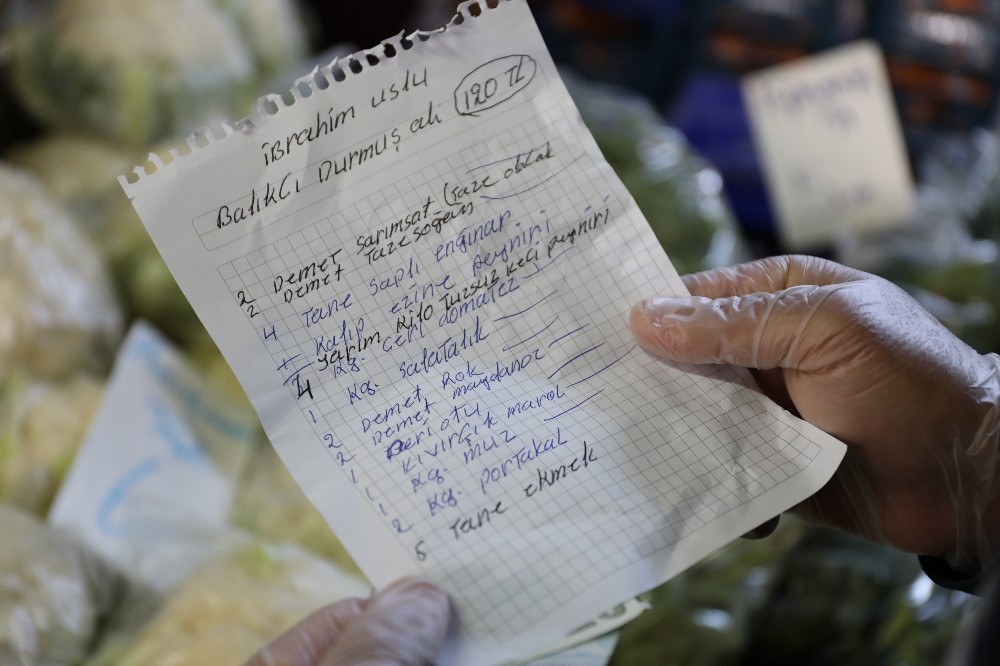 ibrahim uslu
Balıkcı Durmuş alı 120 TL
2 Demet sarımsat (Taze olacak
2 Demet Taze soğan
4 Tane saplı enginar
1 Kalıp ezine peyniri
yarım kilo Tuzsuz keçi peyniri
4 kg. ceri domatez
1 kg. salatalık
2 Demet Rok
2 Demet maydanoz
1 Deri otu
1 Kıvırçık marol
1 kg. muz
2 kg. portakal
5 Tane ekmek